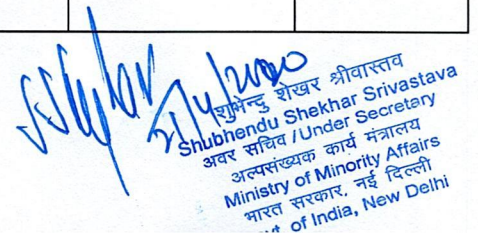 शुभेन्दु शेखर श्रीवास्तव
Shubhendu Shekhar Srivastava
अवर सचिव / Under Secretary
अल्पसंख्यक कार्य मंत्रालय
Ministry of Minority Affairs
भारत सरकार, नई दिल्ली
of India, New Delhi